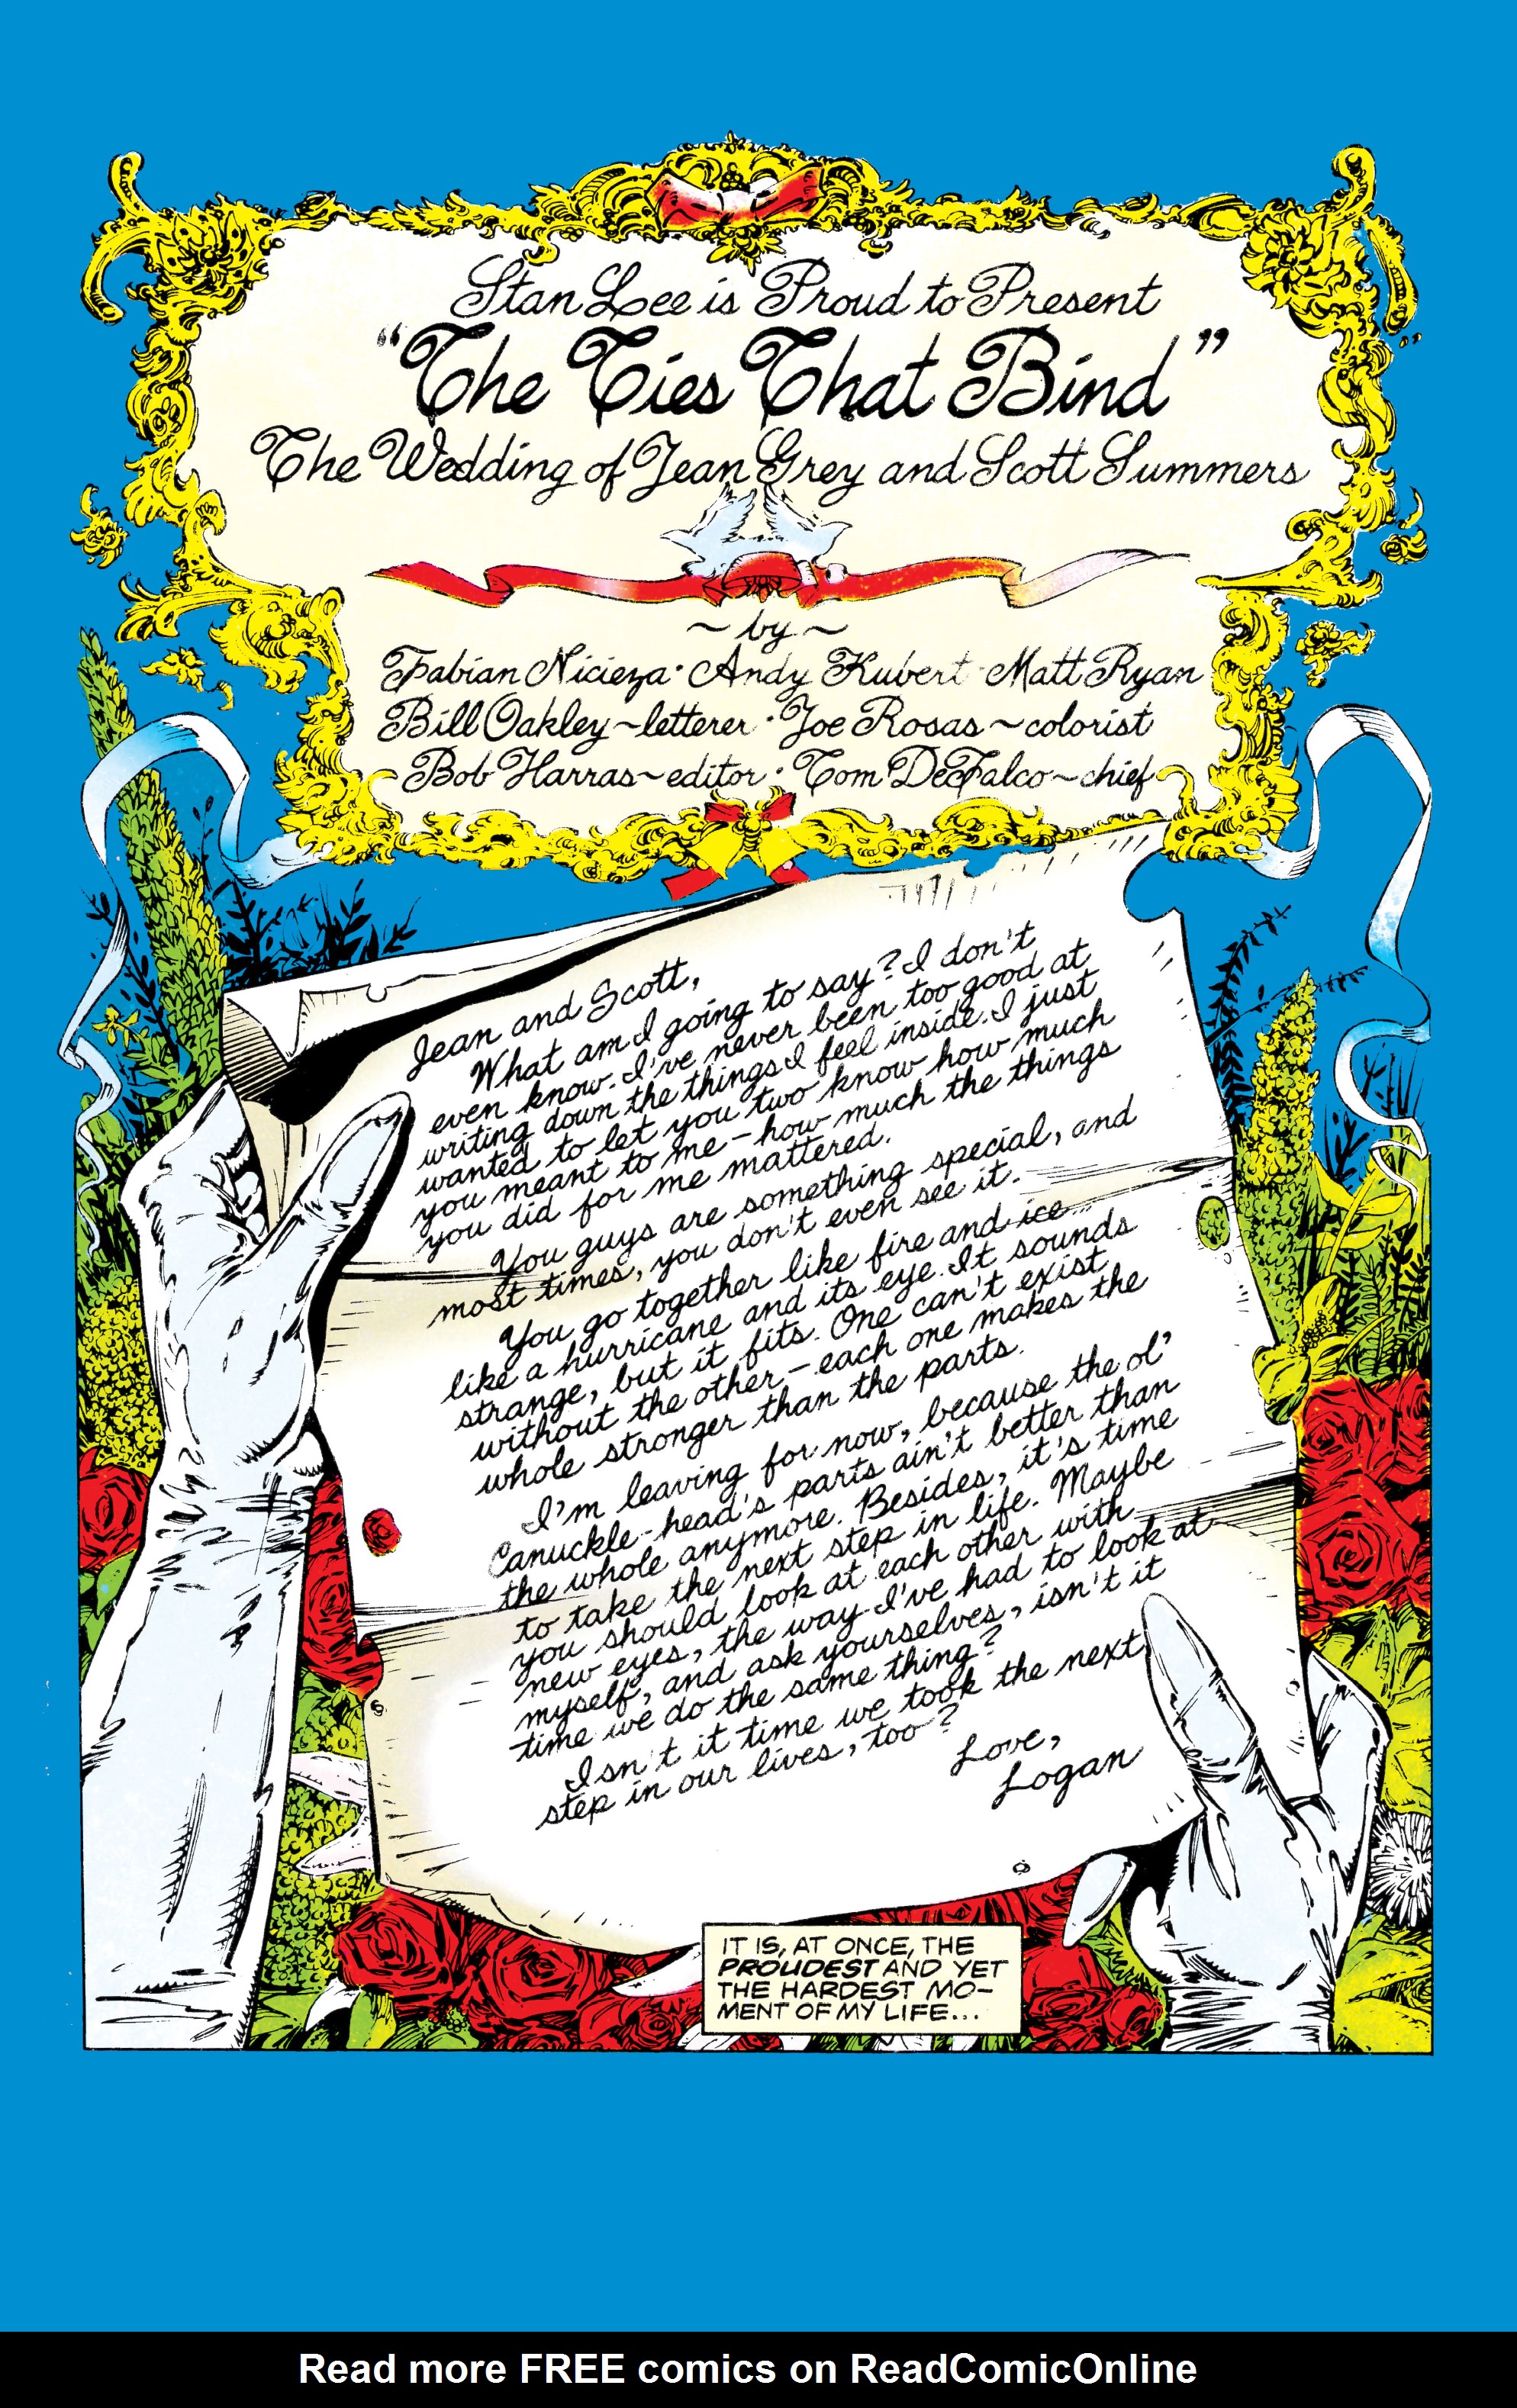 Stan Lee is Proud to Present
"The Ties That Bind"
The Wedding of Jean Grey and Scott Summers
~ by ~
Fabian Nicieza · Andy Kubert · Matt Ryan
Bill Oakley ~ letterer · Joe Rosas ~ colorist
Bob Harras ~ editor · Tom DeFalco ~ chief
Jean and Scott,
What am I going to say? I don't
even know. I've never been too good at
writing down the things I feel inside. I just
wanted to let you two know how much
you meant to me - how much the things
you did for me mattered.
You guys are something special, and
most times, you don't even see it.
You go together like fire and ice...
like a hurricane and its eye. It sounds
strange, but it fits. One can't exist
without the other - each one makes the
whole stronger than the parts.
I'm leaving for now, because the ol'
Canuckle-head's parts ain't better than
the whole anymore. Besides, it's time
to take the next step in life. Maybe
you should look at each other with
new eyes, the way I've had to look at
myself, and ask yourselves, isn't it
time we do the same thing?
Isn't it time we took the next
step in our lives, too?
Love,
Logan
IT IS, AT ONCE, THE
PROUDEST AND YET
THE HARDEST MO-
MENT OF MY LIFE...
Read more FREE comics on ReadComicOnline